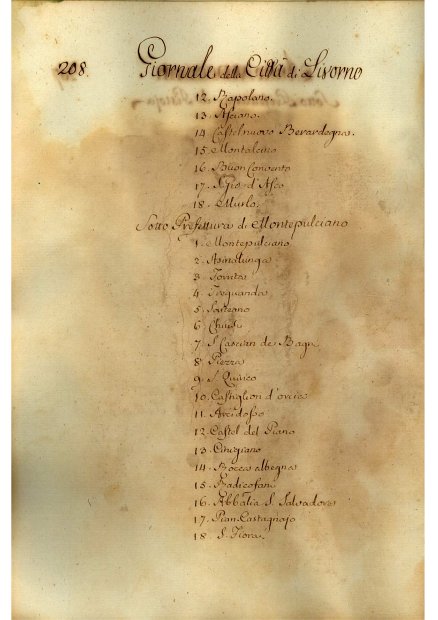 208.
Giornale della Città di Livorno
12. Rapolano.
13. Asciano.
14 Castelnuovo Berardegna.
15 Montalcino
16. Buon Convento
17. S. Gio: d'Asso
18. Murlo.
Sotto Prefettura di Montepulciano
1. Montepulciano
2. Asinalunga
3. Torrita
4. Trequanda
5. Sarteano
6. Chiusi
7. S. Cascian de Bagni
8. Pienza
9. S. Quirico
10. Castiglion d'orcia
11. Arcidosso
12. Castel del Piano
13. Cinigiano
14. Rocca albegna
15. Radicofani
16. Abbatia S. Salvadore
17. Pian Castagnajo
18 S. Fiora